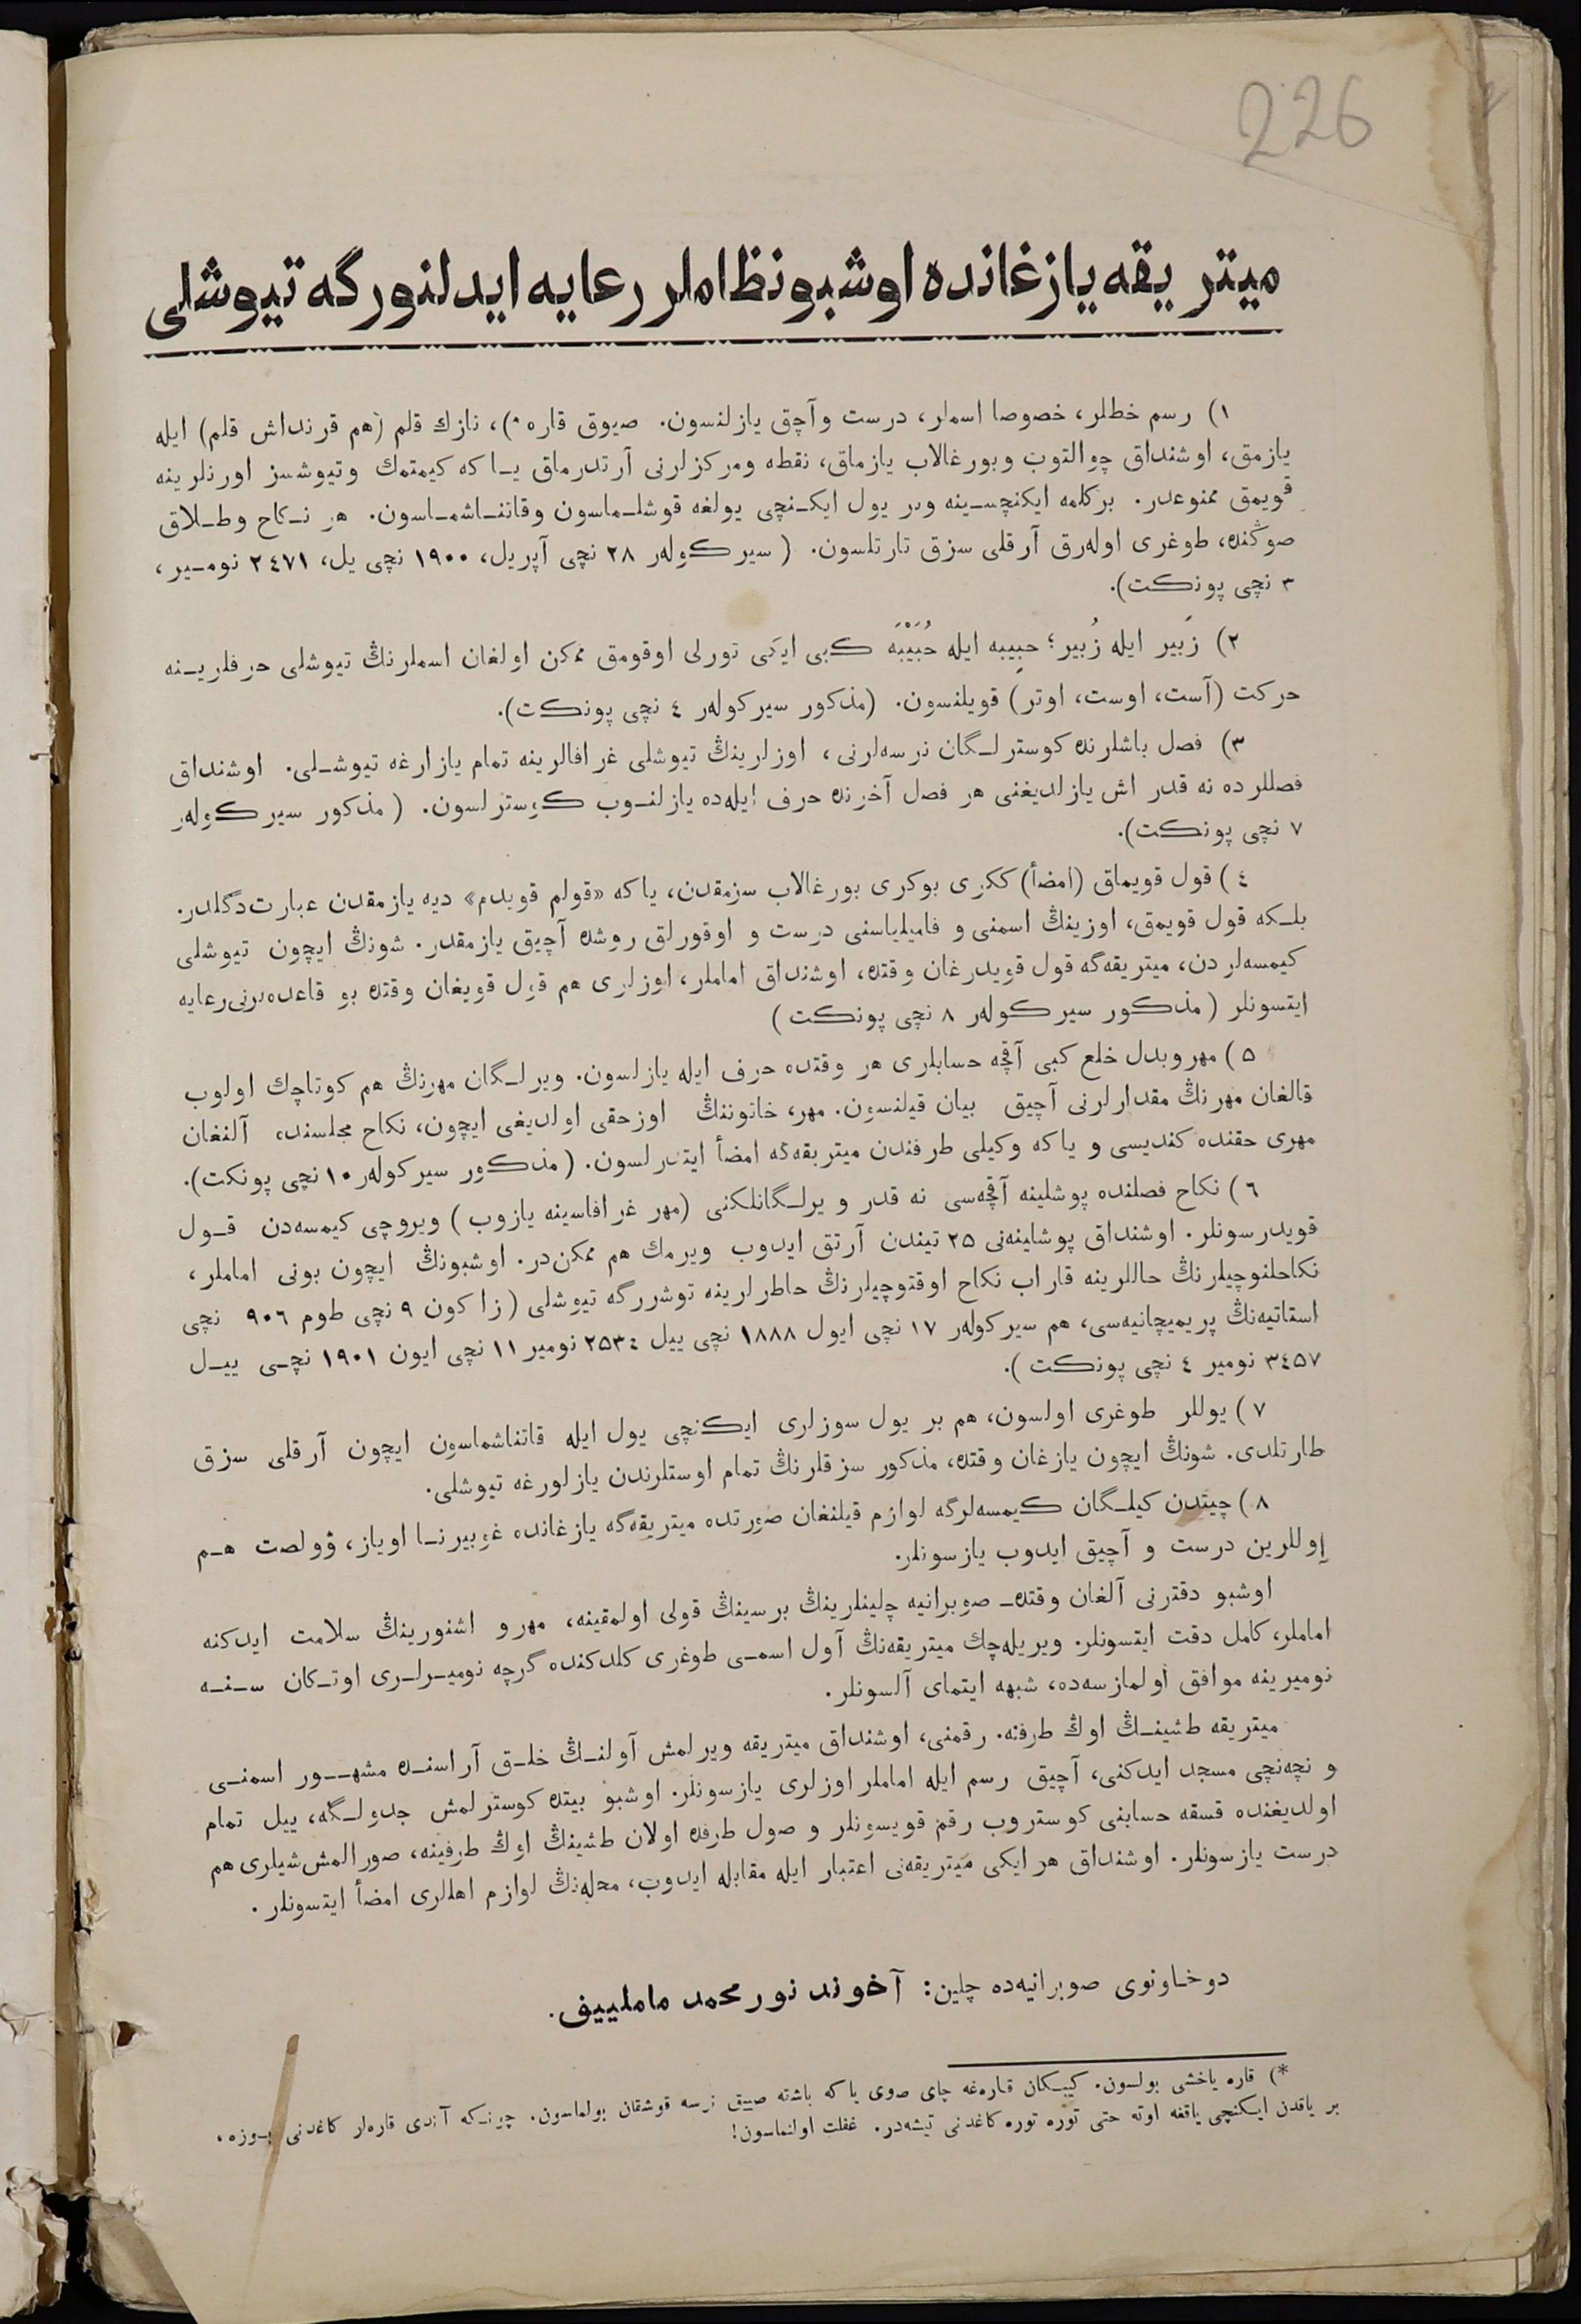 226
ميتريقه يازغانده اوشبو نظاملر رعايه ايدلنورگه تيوشلى
١) رسم خطلر، خصوصا اسملر، درست وآچق يازلنسون. صيوق قاره *)، نازك قلم (هم قرنداش قلم) ايله
يازمق، اوشنداق چوالتوب وبورغالاب يازماق، نقطه ومركزلرنى آرتدرماق ياكه كيمتمك وتيوشسز اورنلرينه
قويمق ممنوعدر. بركلمه ايكنچسينه وبر يول ايكنچى يولغه قوشلماسون وقاتناشماسون. هر نكاح وطلاق
صوڭنده، طوغرى اوله‌رق آرقلى سزق تارتلسون. (سيركوله‌ر ٢٨ نچى آپريل، ١٩٠٠ نچى يل، ٢٤٧١ نومير،
٣ نچى پونكت).
٢) زَبير ايله زُبير؛ حبِيبه ايله حُبَيْبَه كبى ايكى تورلى اوقومق ممكن اولغان اسملرنڭ تيوشلى حرفلرينه
حركت (آست، اوست، اوتر) قويلنسون. (مذكور سيركوله‌ر ٤ نچى پونكت).
٣) فصل باشلرنده كوسترلگان نرسه‌لرنى، اوزلرينڭ تيوشلى غرافالرينه تمام يازارغه تيوشلى. اوشنداق
فصللرده نه قدر اش يازلديغنى هر فصل آخرنده حرف ايله‌ده يازلنوب كوسترلسون. (مذكور سيركوله‌ر
٧ نچى پونكت).
٤) قول قويماق (امضأ) ككرى بوكرى بورغالاب سزمقدن، ياكه «قولم قويدم» ديه يازمقدن عبارت دگلدر.
بلكه قول قويمق، اوزينڭ اسمنى و فاميلياسنى درست و اوقورلق روشده آچيق يازمقدر. شونڭ ايچون تيوشلى
كيمسه‌لردن، ميتريقه‌گه قول قويدرغان وقتده، اوشنداق اماملر، اوزلرى هم قول قويغان وقتده بو قاعده‌لرنى رعايه
ايتسونلر (مذكور سيركوله‌ر ٨ نچى پونكت)
٥) مهر وبدل خلع كبى آقچه حسابلرى هر وقتده حرف ايله يازلسون. ويرلگان مهرنڭ هم كوتاچك اولوب
قالغان مهرنڭ مقدارلرنى آچيق بيان قيلنسون. مهر، خاتوننڭ اوزحقى اولديغى ايچون، نكاح مجلسنده آلنغان
مهرى حقنده كنديسى و ياكه وكيلى طرفندن ميتريقه‌گه امضأ ايتدرلسون. (مذكور سيركوله‌ر ١٠ نچى پونكت).
٦) نكاح فصلنده پوشلينه آقچه‌سى نه قدر و يرلگانلكنى (مهر غرافاسينه يازوب) ويروچى كيمسه‌دن قول
قويدرسونلر. اوشنداق پوشلينه‌نى ٢٥ تيندن آرتق ايدوب ويرمك هم ممكن‌در. اوشبونڭ ايچون بونى اماملر،
نكاحلنوچيلرنڭ حاللرينه قاراب نكاح اوقتوچيلرنڭ خاطرلرينه توشررگه تيوشلى (زاكون ٩ نچى طوم ٩٠٦ نچى
استاتيه‌نڭ پريميچانيه‌سى، هم سيركوله‌ر ١٧ نچى ايول ١٨٨٨ نچى ييل ٢٥٣٤ نومير ١١ نچى ايون ١٩٠١ نچى ييل
٣٤٥٧ نومير ٤ نچى پونكت).
٧) يوللر طوغرى اولسون، هم بر يول سوزلرى ايكنچى يول ايله قاتناشماسون ايچون آرقلى سزق
طارتلدى. شونڭ ايچون يازغان وقتده، مذكور سزقلرنڭ تمام اوستلرندن يازلورغه تيوشلى.
٨) چيتدن كيلگان كيمسه‌لرگه لوازم قيلنغان صورتده ميتريقه‌گه يازغانده غوبيرنا اوياز، ۋولصت هم
اِوللرين درست و آچيق ايدوب يازسونلر.
اوشبو دفترنى آلغان وقتده صوبرانيه چلينلرينڭ برسينڭ قولى اولمقينه، مهر و اشنورينڭ سلامت ايدكنه
اماملر، كامل دقت ايتسونلر. ويريله‌چك ميتريقه‌نڭ آول اسمى طوغرى كلدكنده گرچه نوميرلرى اوتكان سنه
نوميرينه موافق اولمازسه‌ده، شبهه ايتماى آلسونلر.
ميتريقه طشينڭ اوڭ طرفنه. رقمنى، اوشنداق ميتريقه ويرلمش آولنڭ خلق آراسنده مشهور اسمنى
و نچه‌نچى مسجد ايدكنى، آچيق رسم ايله اماملر اوزلرى يازسونلر. اوشبو بيتده كوسترلمش جدولگه، ييل تمام
اولديغنده قسقه حسابنى كوستروب رقم قويسونلر و صول طرفده اولان طشينڭ اوڭ طرفينه، صورالمش شيلرى هم
درست يازسونلر. اوشنداق هر ايكى ميتريقه‌نى اعتبار ايله مقابله ايدوب، محله‌نڭ لوازم اهللرى امضأ ايتسونلر.
دوخاونوى صوبرانيه‌ده چلين: آخوند نور محمد ماملييف.
*) قاره ياخشى بولسون. كيبكان قاره‌غه چاى صوى ياكه باشته صيق نرسه قوشقان بولماسون. چونكه آندى قاره‌لر كاغدنى بوزه،
بر ياقدن ايكنچى ياققه اوته حتى توره توره كاغدنى تيشه‌در. غفلت اولنماسون!